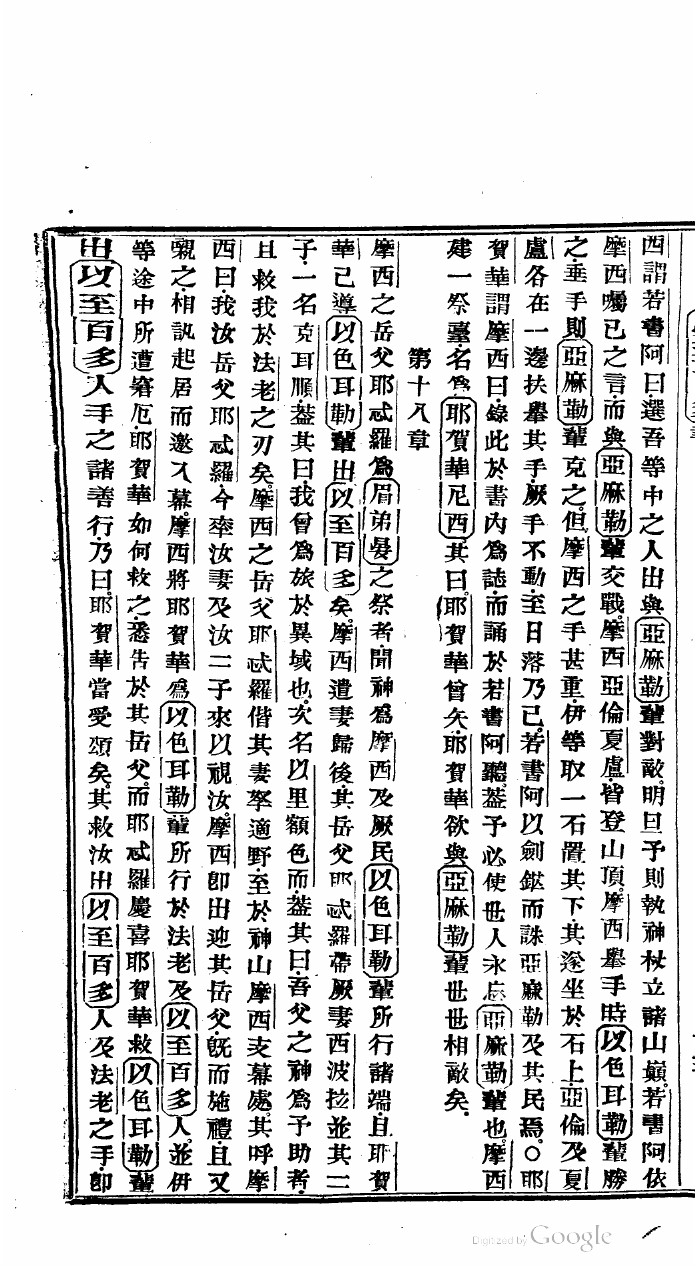 西謂若書阿曰選吾等中之人出與亞麻勒輩對敵。明旦予則執神杖立諸山巔。若書阿依
摩西囑己之言而與亞麻勒輩交戰。摩西亞倫夏盧皆登山頂。摩西舉手時以色耳勒輩勝
之。垂手則亞麻勒輩克之。但摩西之手甚重。伊等取一石置其下。其遂坐於石上。亞倫及夏
盧各在一邊扶舉其手。厥手不動。至日落乃已。若書阿以劍鋩而誅亞麻勒及其民焉。○耶
賀華謂摩西曰。錄此於書內為誌。而誦於若書阿聽。葢予必使世人永忘亞麻勒輩也。摩西
建一祭臺名為耶賀華尼西。其曰耶賀華曾矢。耶賀華欲與亞麻勒輩世世相敵矣。
第十八章
摩西之岳父耶忒羅為眉弟晏之祭者。聞神為摩西及厥民以色耳勒輩所行諸端。且耶賀
華已導以色耳勒輩出以至百多矣。摩西遣妻歸後。其岳父耶忒羅帶厥妻西波拉並其二
子。一名克耳順。葢其曰。我曾為旅於異域也。次名以里額色而。葢其曰。吾父之神為予助者。
且救我於法老之刃矣。摩西之岳父耶忒羅偕其妻孥適野。至於神山摩西支幕處。其呼摩
西曰我汝岳父耶忒羅今率汝妻及汝二子來以視汝。摩西卽出迎其岳父。旣而施禮。且又
嚫之。相訊起居而邀入幕。摩西將耶賀華為以色耳勒輩所行於法老及以至百多人並伊
等途中所遭窘厄。耶賀華如何救之。悉告於其岳父。而耶忒羅慶喜耶賀華救以色耳勒輩
出以至百多人手之諸善行。乃曰。耶賀華當愛頌矣。其救汝出以至百多人及法老之手。卽
Digitized by Google